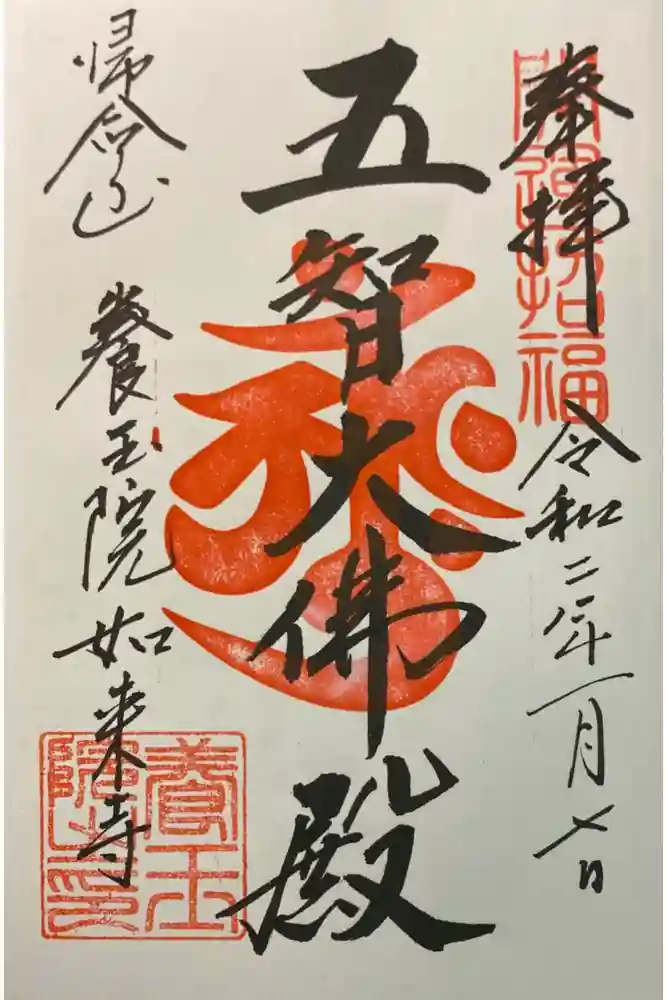 奉拝
令和二年一月七日
五智大佛殿
帰命山 養玉院如来寺
開運招福
養玉院印